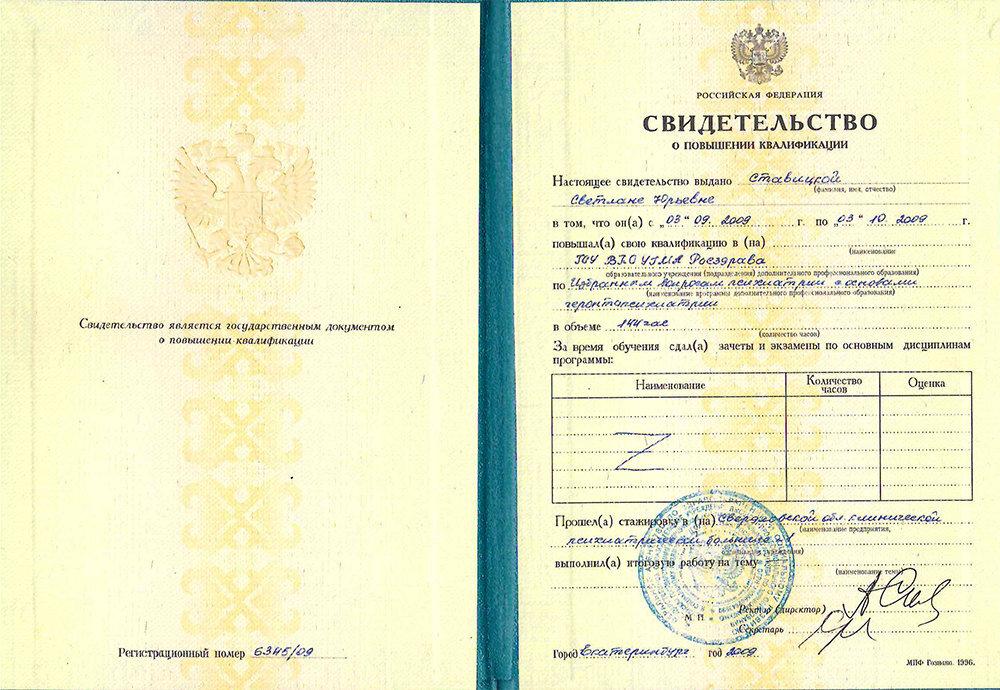 Свидетельство является государственным документом
о повышении квалификации
Регистрационный номер 6345/09
РОССИЙСКАЯ ФЕДЕРАЦИЯ
СВИДЕТЕЛЬСТВО
О ПОВЫШЕНИИ КВАЛИФИКАЦИИ
Настоящее свидетельство выдано Ставицкой
(фамилия, имя, отчество)
Светлане Юрьевне
в том, что он(а) с „03“ 09. 2009 г. по „03“ 10. 2009 г.
повышал(а) свою квалификацию в (на)
(наименование
ГОУ ВПО УГМА Росздрава
образовательного учреждения (подразделения) дополнительного профессионального образования)
по Избранным вопросам психиатрии с основами
(наименование программы дополнительного профессионального образования)
геронтопсихиатрии
в объеме 144 час
(количество часов)
За время обучения сдал(а) зачеты и экзамены по основным дисциплинам
программы:
Наименование Количество часов Оценка
Z
Прошел(а) стажировку в (на) Свердловской обл. клинической
(наименование предприятия,
психиатрической больнице
учреждения)
выполнил(а) итоговую работу на тему
(наименование темы)
Ректор (директор)
М П
Секретарь
Город Екатеринбург год 2009
МПФ Гознака. 1996.